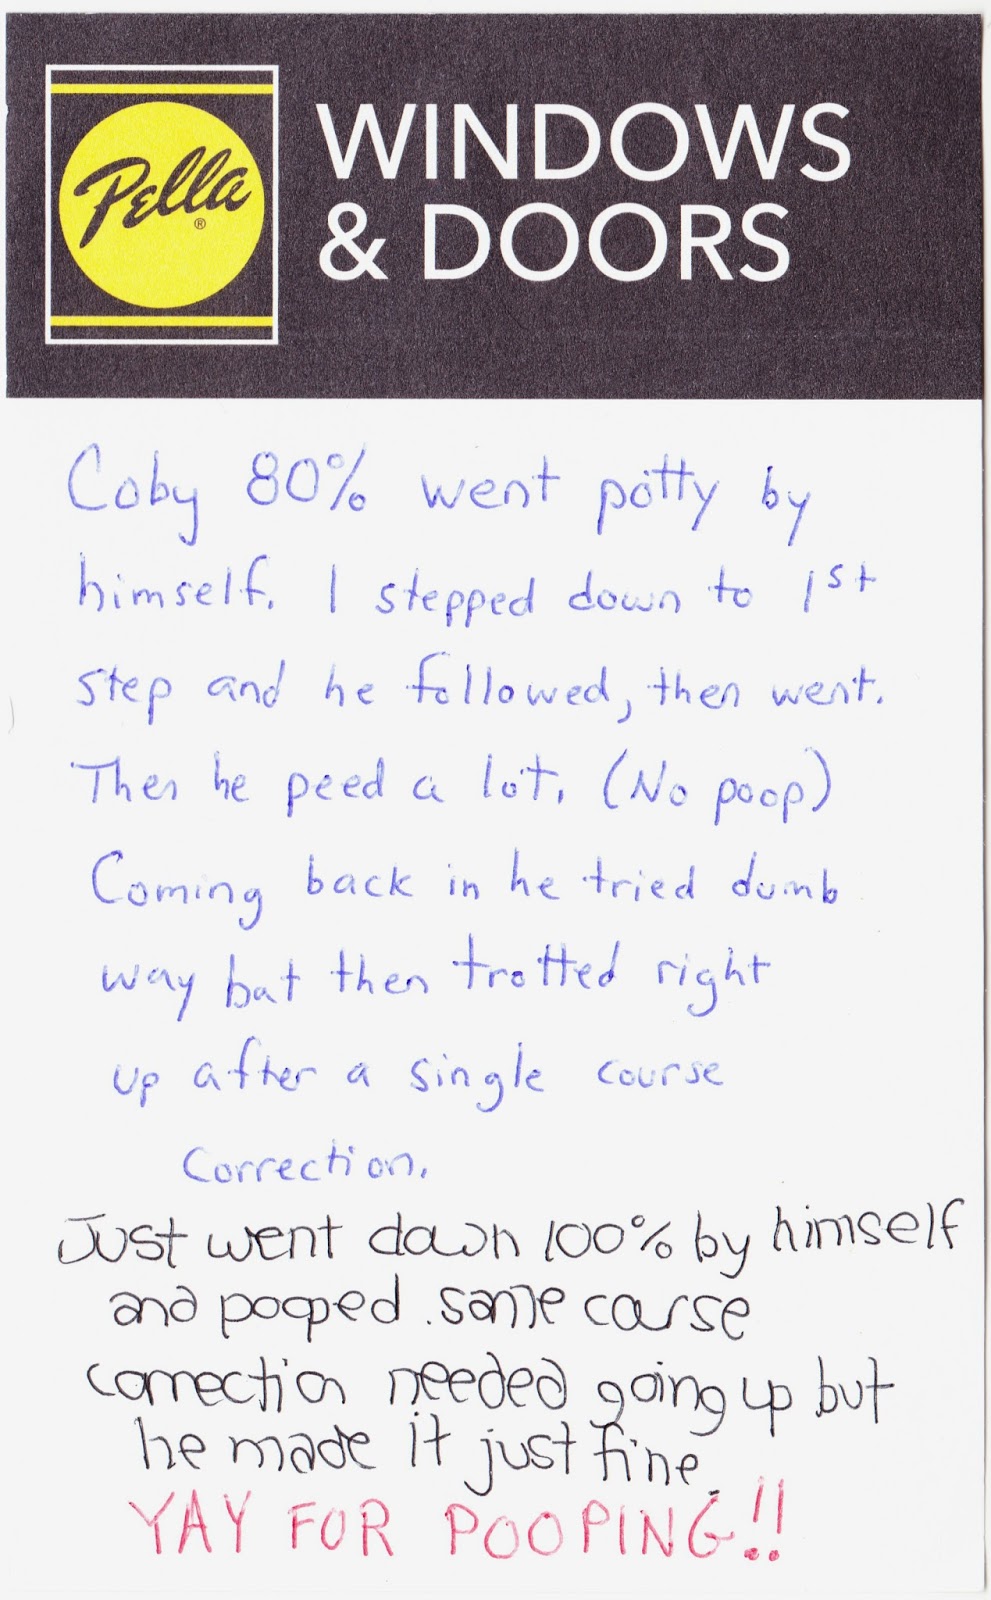 Pella ®
WINDOWS
& DOORS
Coby 80% went potty by
himself. I stepped down to 1st
step and he followed, then went.
Then he peed a lot. (No poop)
Coming back in he tried dumb
way but then trotted right
up after a single course
correction.
Just went down 100% by himself
and pooped. same course
correction needed going up but
he made it just fine.
YAY FOR POOPING!!